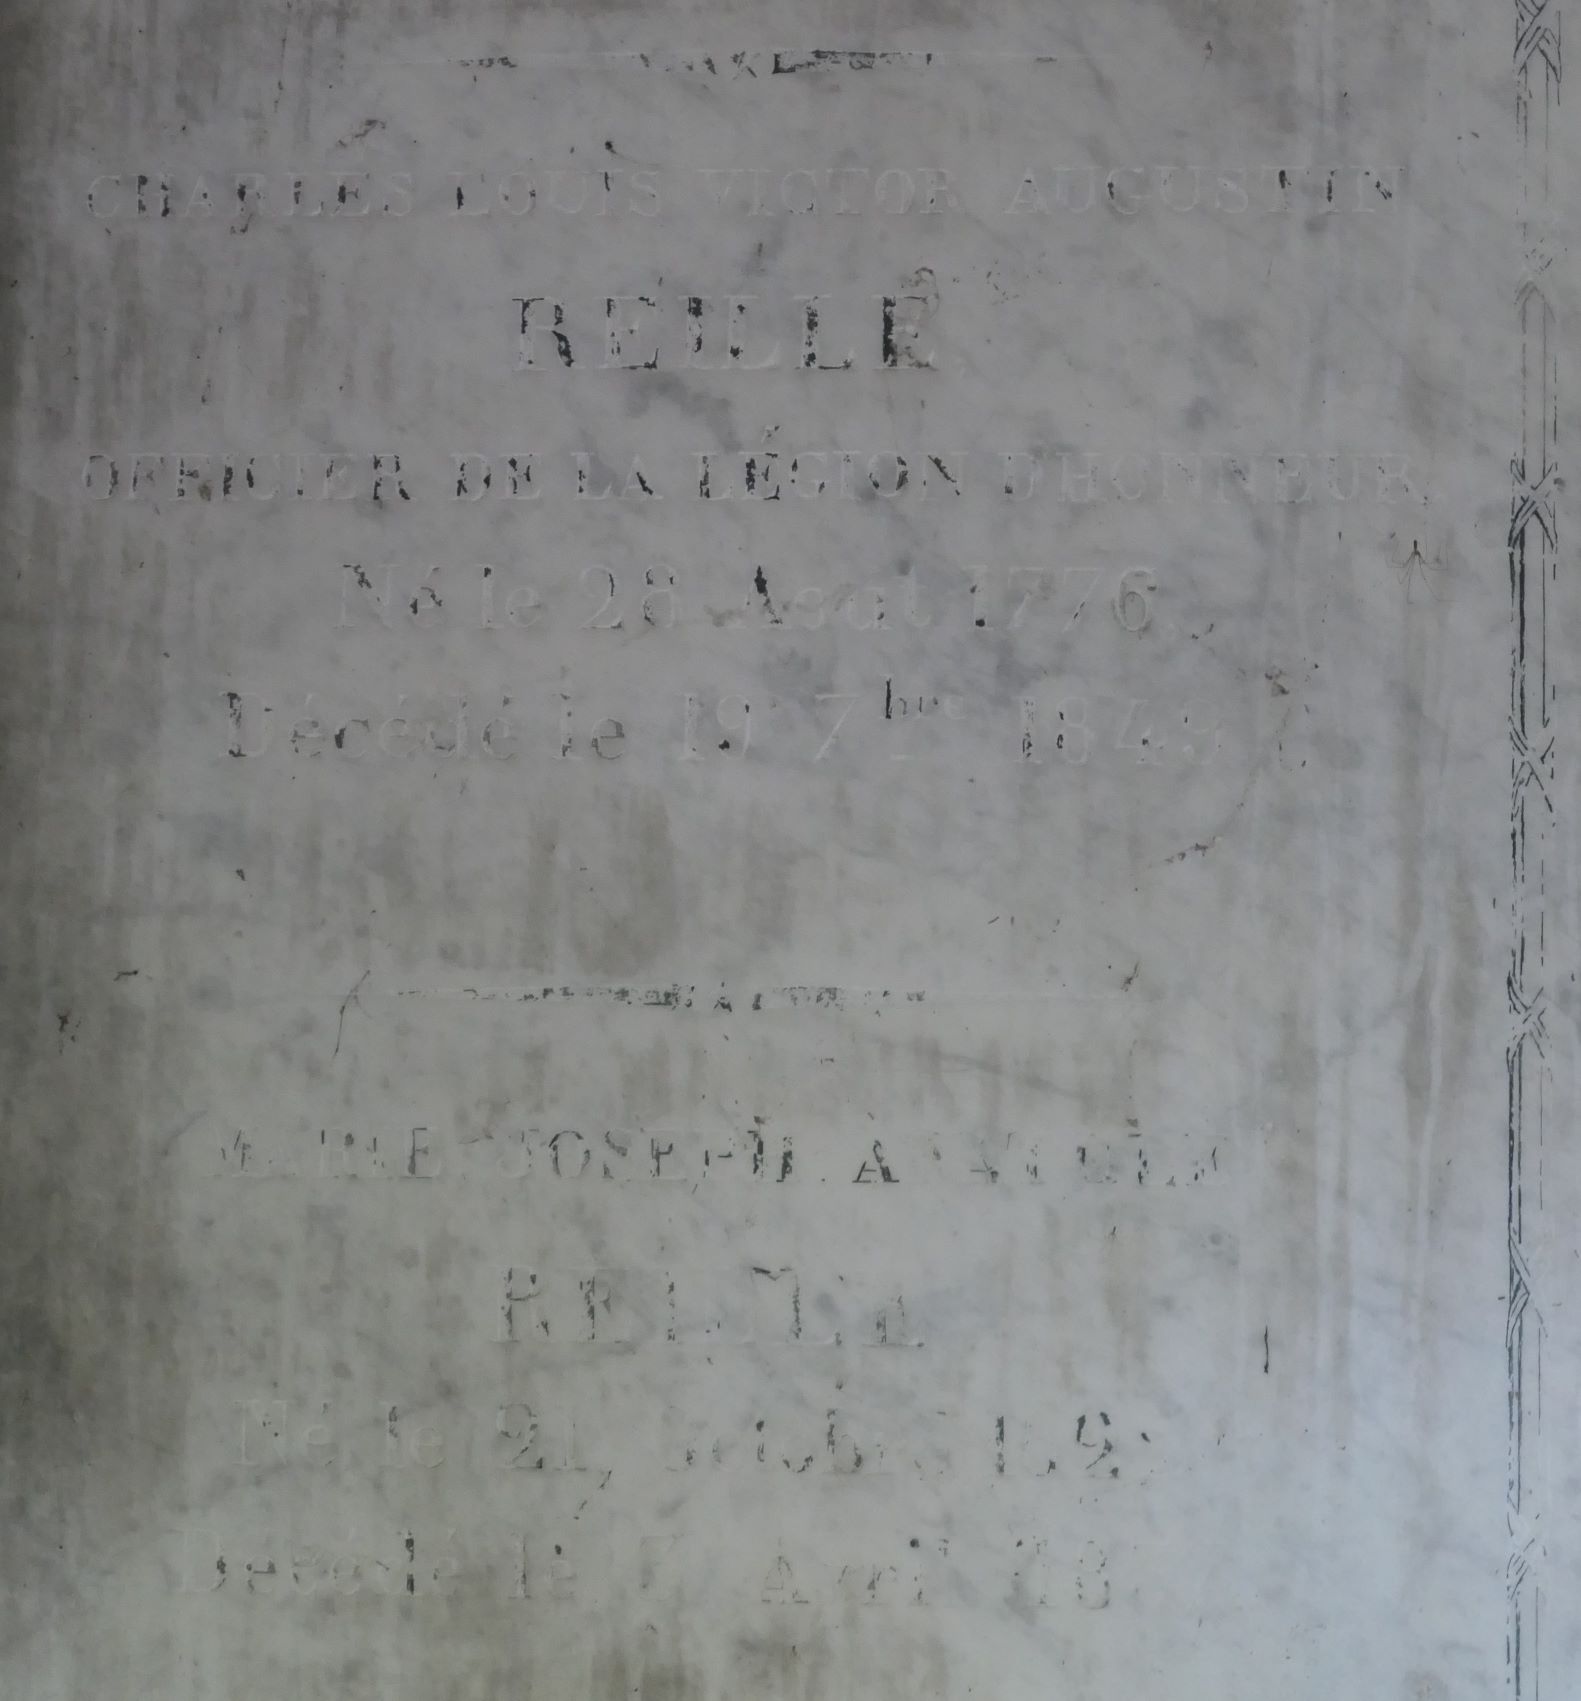 CHARLES LOUIS VICTOR AUGUSTIN
REILLE,
OFFICIER DE LA LÉGION D'HONNEUR,
Né le 28 Aout 1776,
Décédé le 19 7bre 1849
MARIE JOSEPH
REILLE
Né le 21, Octobre
Décédé le Avril